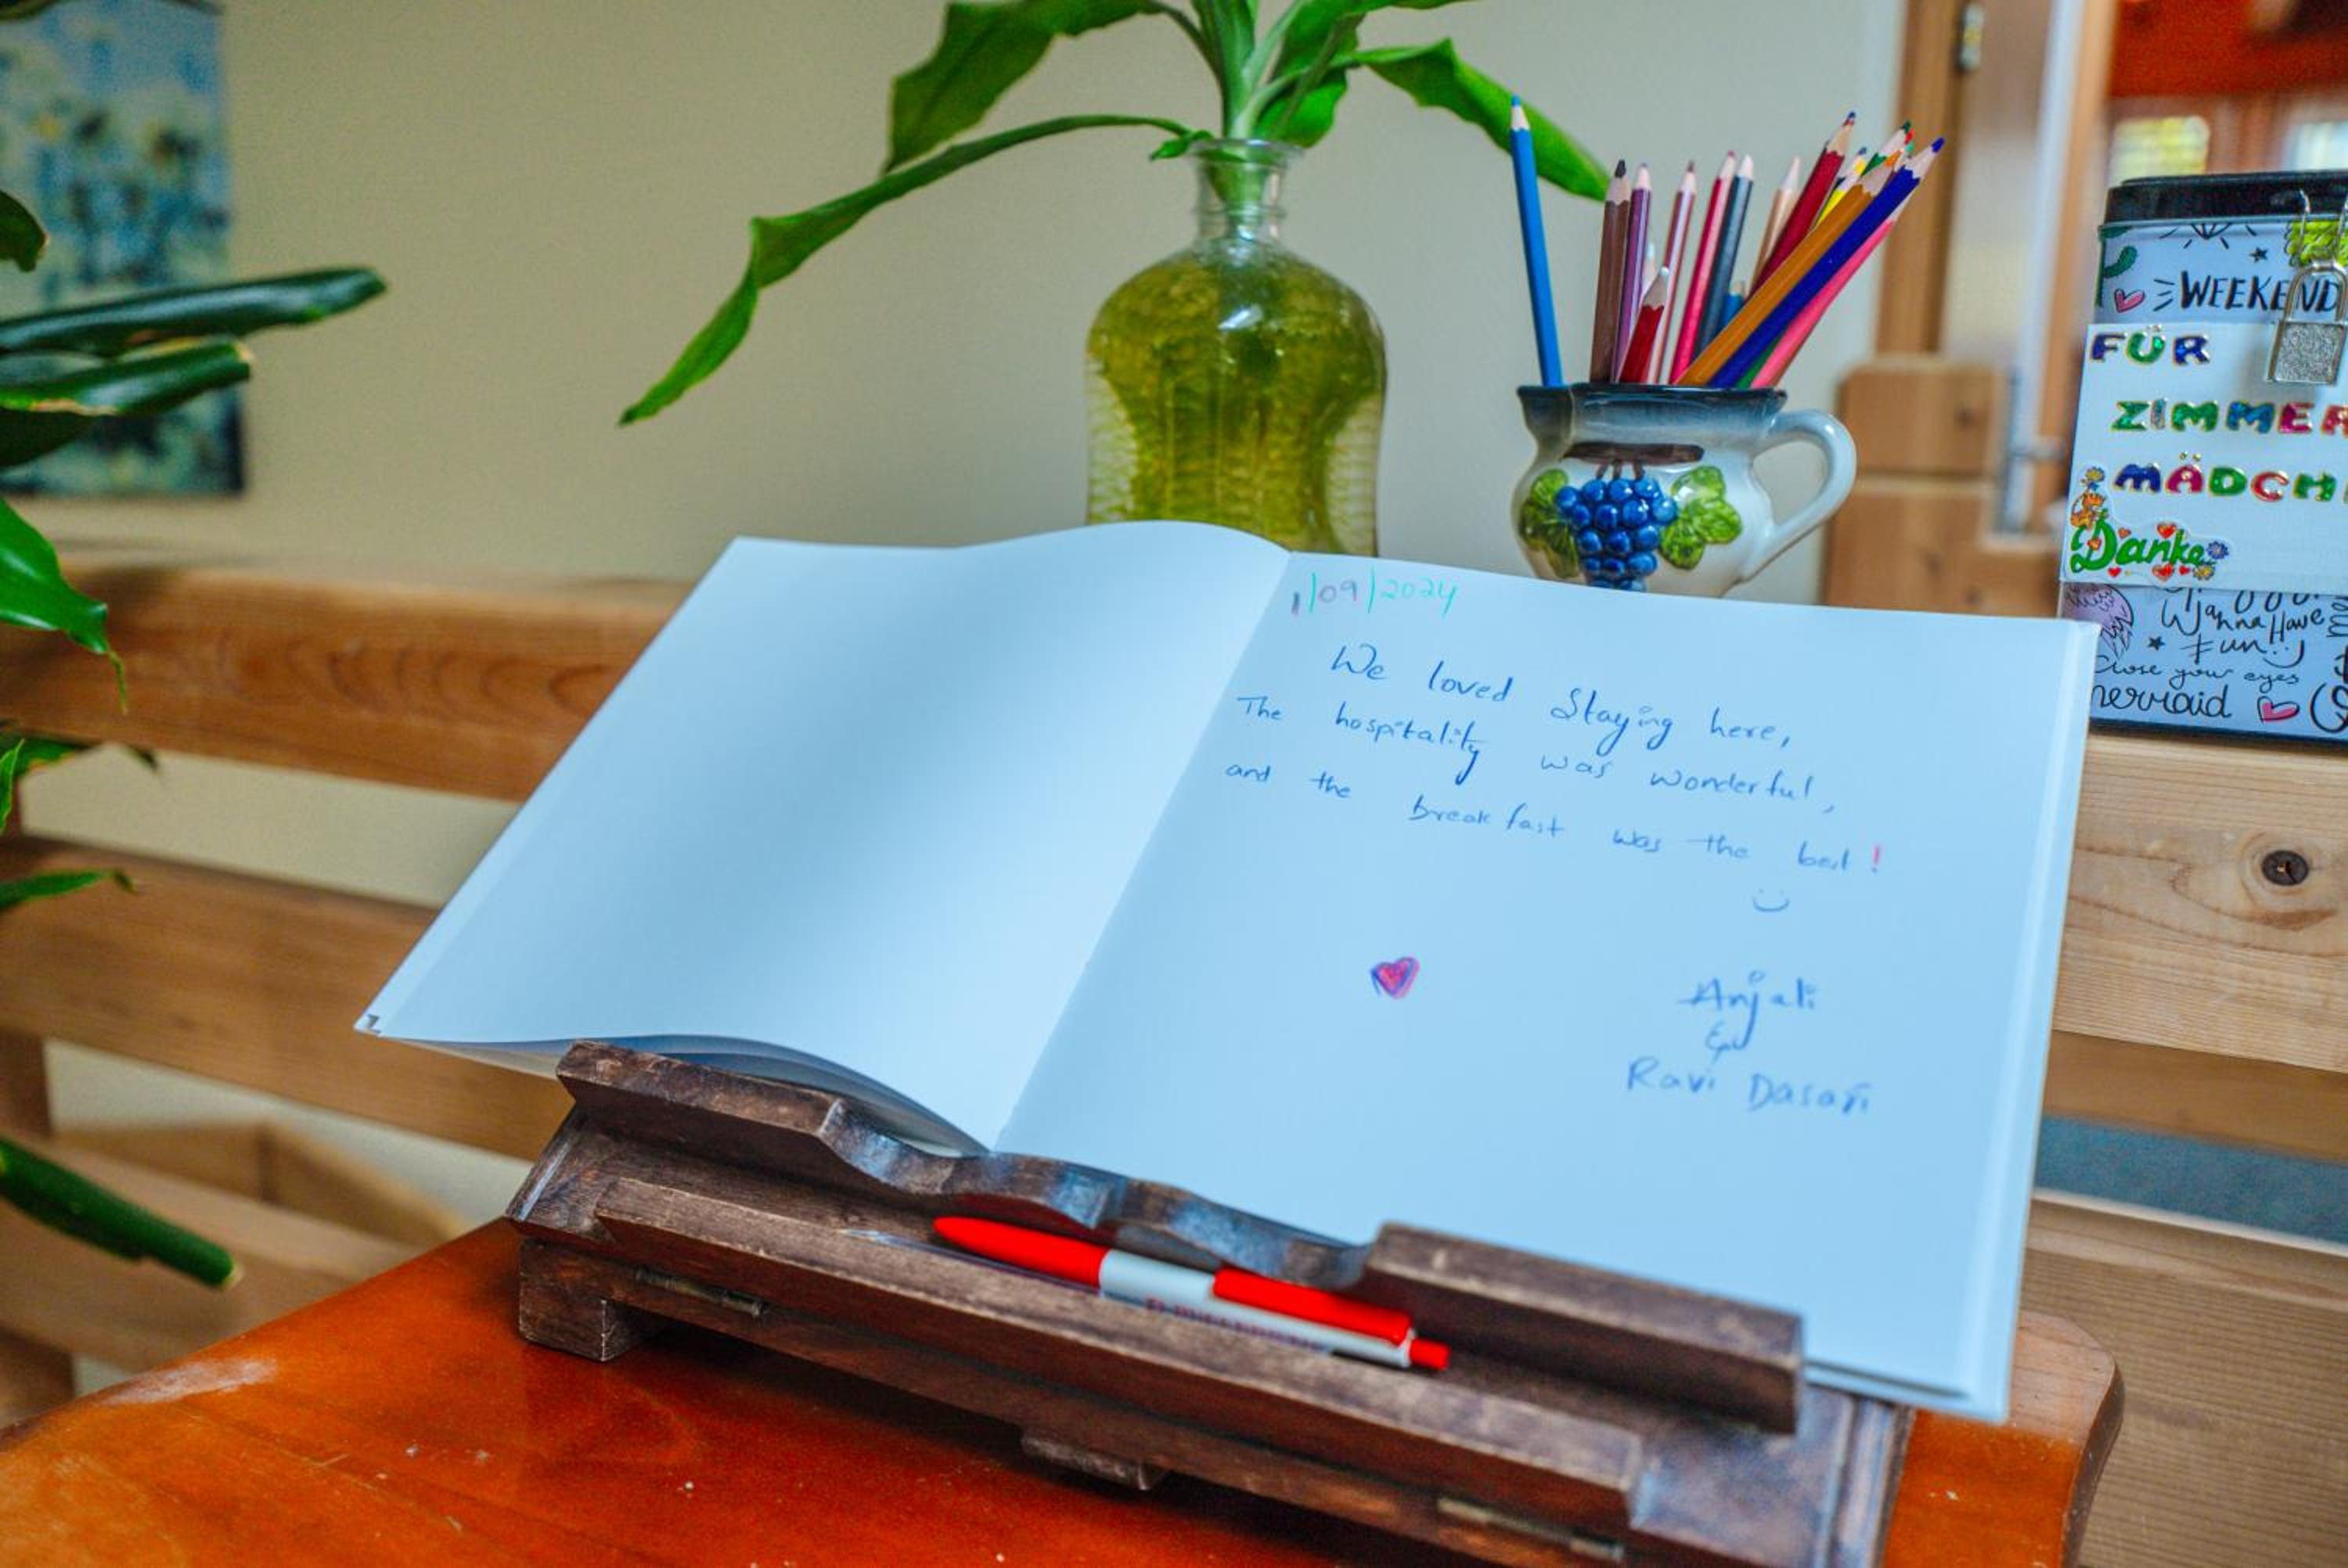 1/09/2024
We loved Staying here,
The hospitality was wonderful,
and the breakfast was the best!
Anjali
&
Ravi Dasari
WEEKEND
FÜR
ZIMMER
MÄDCH
Danke
Wanna Have
Fun!!
Close your eyes